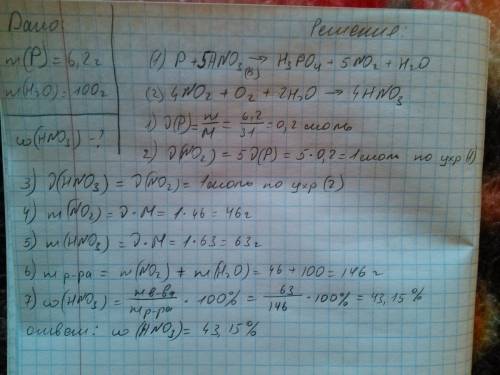 Дано:
Решение:
m(P) = 6,2г
m(H2O) = 100г
ω(HNO3) - ?
(1) P + 5HNO3(к) → H3PO4 + 5NO2 + H2O
(2) 4NO2 + O2 + 2H2O → 4HNO3
1) ν(P) = m/M = 6,2/31 = 0,2 моль
2) ν(NO2) = 5ν(P) = 5·0,2 = 1 моль по ухр (1)
3) ν(HNO3) = ν(NO2) = 1 моль по ухр (2)
4) m(NO2) = ν·M = 1·46 = 46г
5) m(HNO3) = ν·M = 1·63 = 63г
6) m р-ра = m(NO2) + m(H2O) = 46 + 100 = 146 г
7) ω(HNO3) = m в-ва/m р-ра · 100% = 63/146 · 100% = 43,15%
ответ: ω(HNO3) = 43,15%